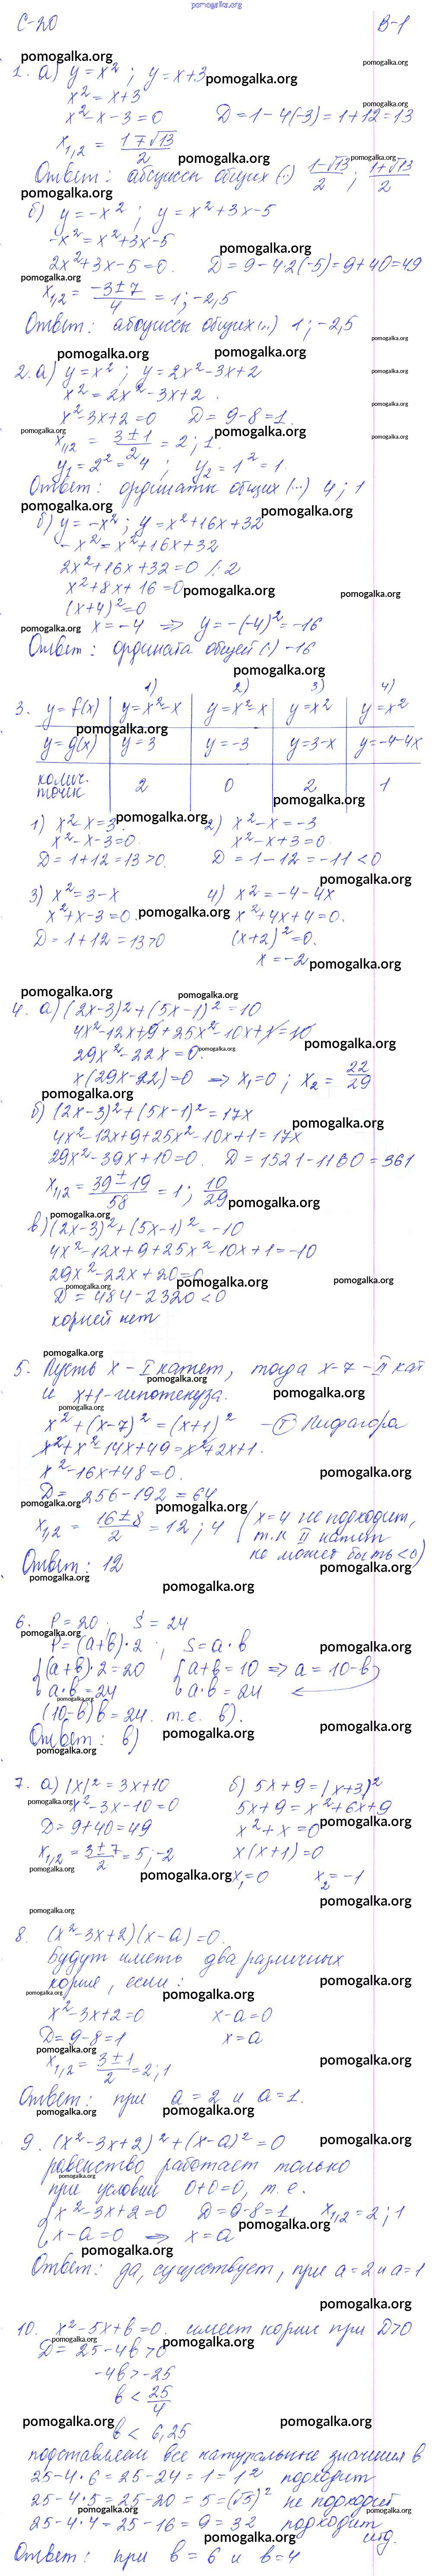 pomogalka.org
С-20 В-1
1. а) y = x²; y = x+3
x² = x+3
x² - x - 3 = 0 D = 1 - 4(-3) = 1+12 = 13
x₁,₂ = (1 ∓ √13)/2
Ответ: абсциссы общих (·) (1-√13)/2; (1+√13)/2
б) y = -x²; y = x²+3x-5
-x² = x²+3x-5
2x²+3x-5=0. D = 9-4·2(-5) = 9+40=49
x₁,₂ = (-3±7)/4 = 1; -2,5
Ответ: абсциссы общих (..) 1; -2,5
2. а) y = x²; y = 2x²-3x+2
x² = 2x²-3x+2.
x²-3x+2=0 D = 9-8=1.
x₁,₂ = (3±1)/2 = 2; 1.
y₁ = 2² = 4; y₂ = 1² = 1.
Ответ: ординаты общих (..) 4; 1
б) y = -x²; y = x²+16x+32
-x² = x²+16x+32
2x²+16x+32=0 /:2
x²+8x+16=0
(x+4)²=0
x = -4 ⇒ y = -(-4)² = -16
Ответ: ордината общей (·) -16
1) 2) 3) 4)
3. y=f(x) y=x²-x y=x²-x y=x² y=x²
y=g(x) y=3 y=-3 y=3-x y=-4-4x
колич. точек 2 0 2 1
1) x²-x=3. 2) x²-x=-3
x²-x-3=0. x²-x+3=0.
D=1+12=13>0. D=1-12=-11<0
3) x²=3-x 4) x²=-4-4x
x²+x-3=0. x²+4x+4=0.
D=1+12=13>0 (x+2)²=0.
x=-2
4. а) (2x-3)²+(5x-1)²=10
4x²-12x+9+25x²-10x+1=10
29x²-22x=0.
x(29x-22)=0 ⇒ x₁=0; x₂ = 22/29
б) (2x-3)²+(5x-1)²=17x
4x²-12x+9+25x²-10x+1=17x
29x²-39x+10=0. D = 1521-1160 = 361
x₁,₂ = (39±19)/58 = 1; 10/29
в) (2x-3)²+(5x-1)²=-10
4x²-12x+9+25x²-10x+1=-10
29x²-22x+20=0
D=484-2320<0
корней нет
5. Пусть x - I катет, тогда x-7 - II кат
и x+1 - гипотенуза.
x²+(x-7)²=(x+1)² - Т Пифагора
x²+x²-14x+49=x²+2x+1.
x²-16x+48=0.
D = 256-192=64
x₁,₂ = (16±8)/2 = 12; 4 (x=4 не подходит,
т.к II катет
не может быть <0)
Ответ: 12
6. P=20; S=24
P=(a+b)·2; S=a·b
{(a+b)·2=20 {a+b=10 ⇒ a=10-b
a·b=24 a·b=24
(10-b)b=24. т.е. в).
Ответ: в)
7. а) |x|²=3x+10 б) 5x+9=(x+3)²
x²-3x-10=0 5x+9=x²+6x+9
D=9+40=49 x²+x=0
x₁,₂ = (3±7)/2 = 5; -2 x(x+1)=0
x₁=0 x₂=-1
8. (x²-3x+2)(x-a)=0.
Будут иметь два различных
корня, если:
x²-3x+2=0 x-a=0
D=9-8=1 x=a
x₁,₂ = (3±1)/2 = 2; 1
Ответ: при a=2 и a=1.
9. (x²-3x+2)²+(x-a)²=0
равенство работает только
при условии 0+0=0, т.е.
{x²-3x+2=0 D=9-8=1 x₁,₂=2; 1
x-a=0 ⇒ x=a
Ответ: да, существует, при a=2 и a=1
10. x²-5x+b=0. имеет корни при D>0
D=25-4b>0
-4b>-25
b < 25/4
b < 6,25
подставляем все натуральные значения b
25-4·6=25-24=1=1² подходит
25-4·5=25-20=5=(√5)² не подходит
25-4·4=25-16=9=3² подходит
итд.
Ответ: при b=6 и b=4